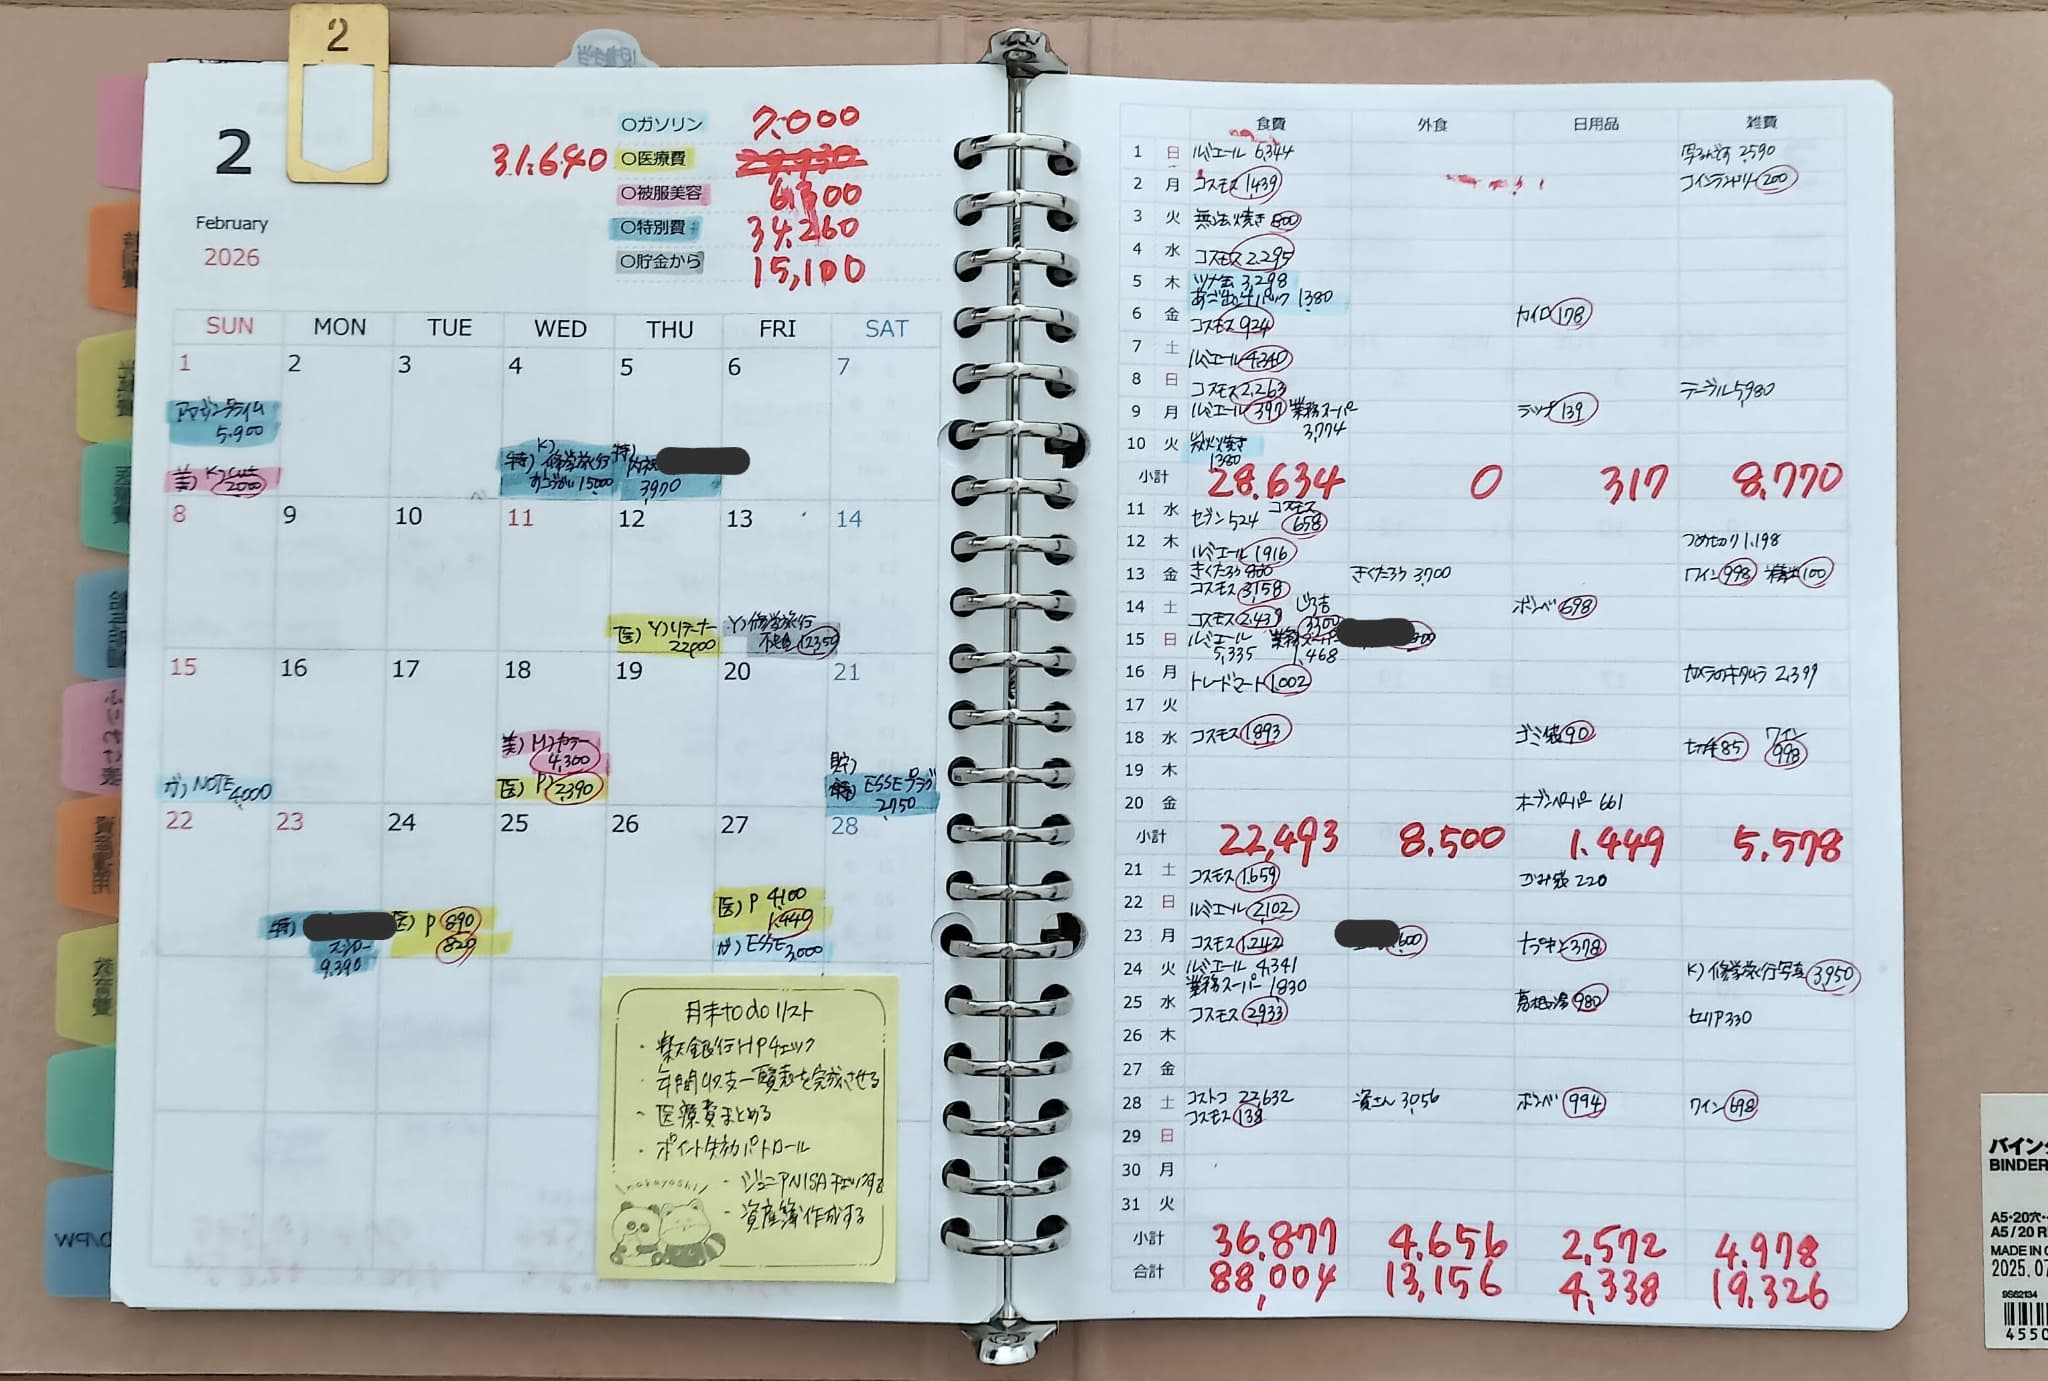 2
2
February
2026
31.640
○ガソリン 7.000
○医療費
○被服美容 6,300
○特別費 34.260
○貯金から 15,100
SUN MON TUE WED THU FRI SAT
1 2 3 4 5 6 7
アマゾンプライム
5.900
美) K)
2000
特) K)修学旅行
おこづかい 15000
特)
3970
8 9 10 11 12 13 14
医) Y)リテーナー
22000
Y)修学旅行
12350
15 16 17 18 19 20 21
ガ) NOTE
4,000
美) M)カラー
4,300
医) P) 2,390
貯)
ESSEプラグ
2750
22 23 24 25 26 27 28
特)
スシロー
9.390
医) P 890
820
医) P 4,100
1,440
ガ) ESSE
3,000
月末to doリスト
・楽天銀行HPチェック
・年間収支一覧表を完成させる
・医療費まとめる
・ポイント失効パトロール
・ジュニアNISAチェックする
・資産簿作成する
nakayoshi
食費 外食 日用品 雑費
1 日 ルミエール 6,344 写るんです 2,590
2 月 コスモス 1439 コインランドリー 200
3 火 無法焼き 800
4 水 コスモス 2.295
5 木 ツナ缶 3,298
あご出汁パック 1380
6 金 コスモス 924 カイロ 178
7 土 ルミエール 4340
8 日 コスモス 2,263 テーブル 5,980
9 月 ルミエール 397 業務スーパー 3,774 ラップ 139
10 火 炭火焼き 1380
小計 28.634 0 317 8.770
11 水 セブン 524 コスモス 658
12 木 ルミエール 1916 つめ切り 1.198
13 金 きくたろう 800 きくたろう 3,700 ワイン 998 100
コスモス 3,158
14 土 コスモス 2.439 3300 ボンベ 698
15 日 ルミエール 5,335 業務スーパー 1,468
16 月 トレードマート 1,002 カメラのキタムラ 2,397
17 火
18 水 コスモス 1893 ゴミ袋 90 切手 85 ワイン 998
19 木
20 金 オーブンペーパー 661
小計 22,493 8.500 1.449 5.578
21 土 コスモス 1.659 ごみ袋 220
22 日 ルミエール 2,102
23 月 コスモス 1.242 600 ナプキン 378
24 火 ルミエール 4,341 K)修学旅行写真 3,950
業務スーパー 1830
25 水 コスモス 2933 葛根湯 982 セリア 330
26 木
27 金
28 土 コストコ 22,632 資さん 3,056 ボンベ 994 ワイン 698
コスモス 138
29 日
30 月
31 火
小計 36.877 4.656 2.572 4.978
合計 88,004 13,156 4,338 19,326
BINDER
A5/20
MADE IN
2025.07
9S62134